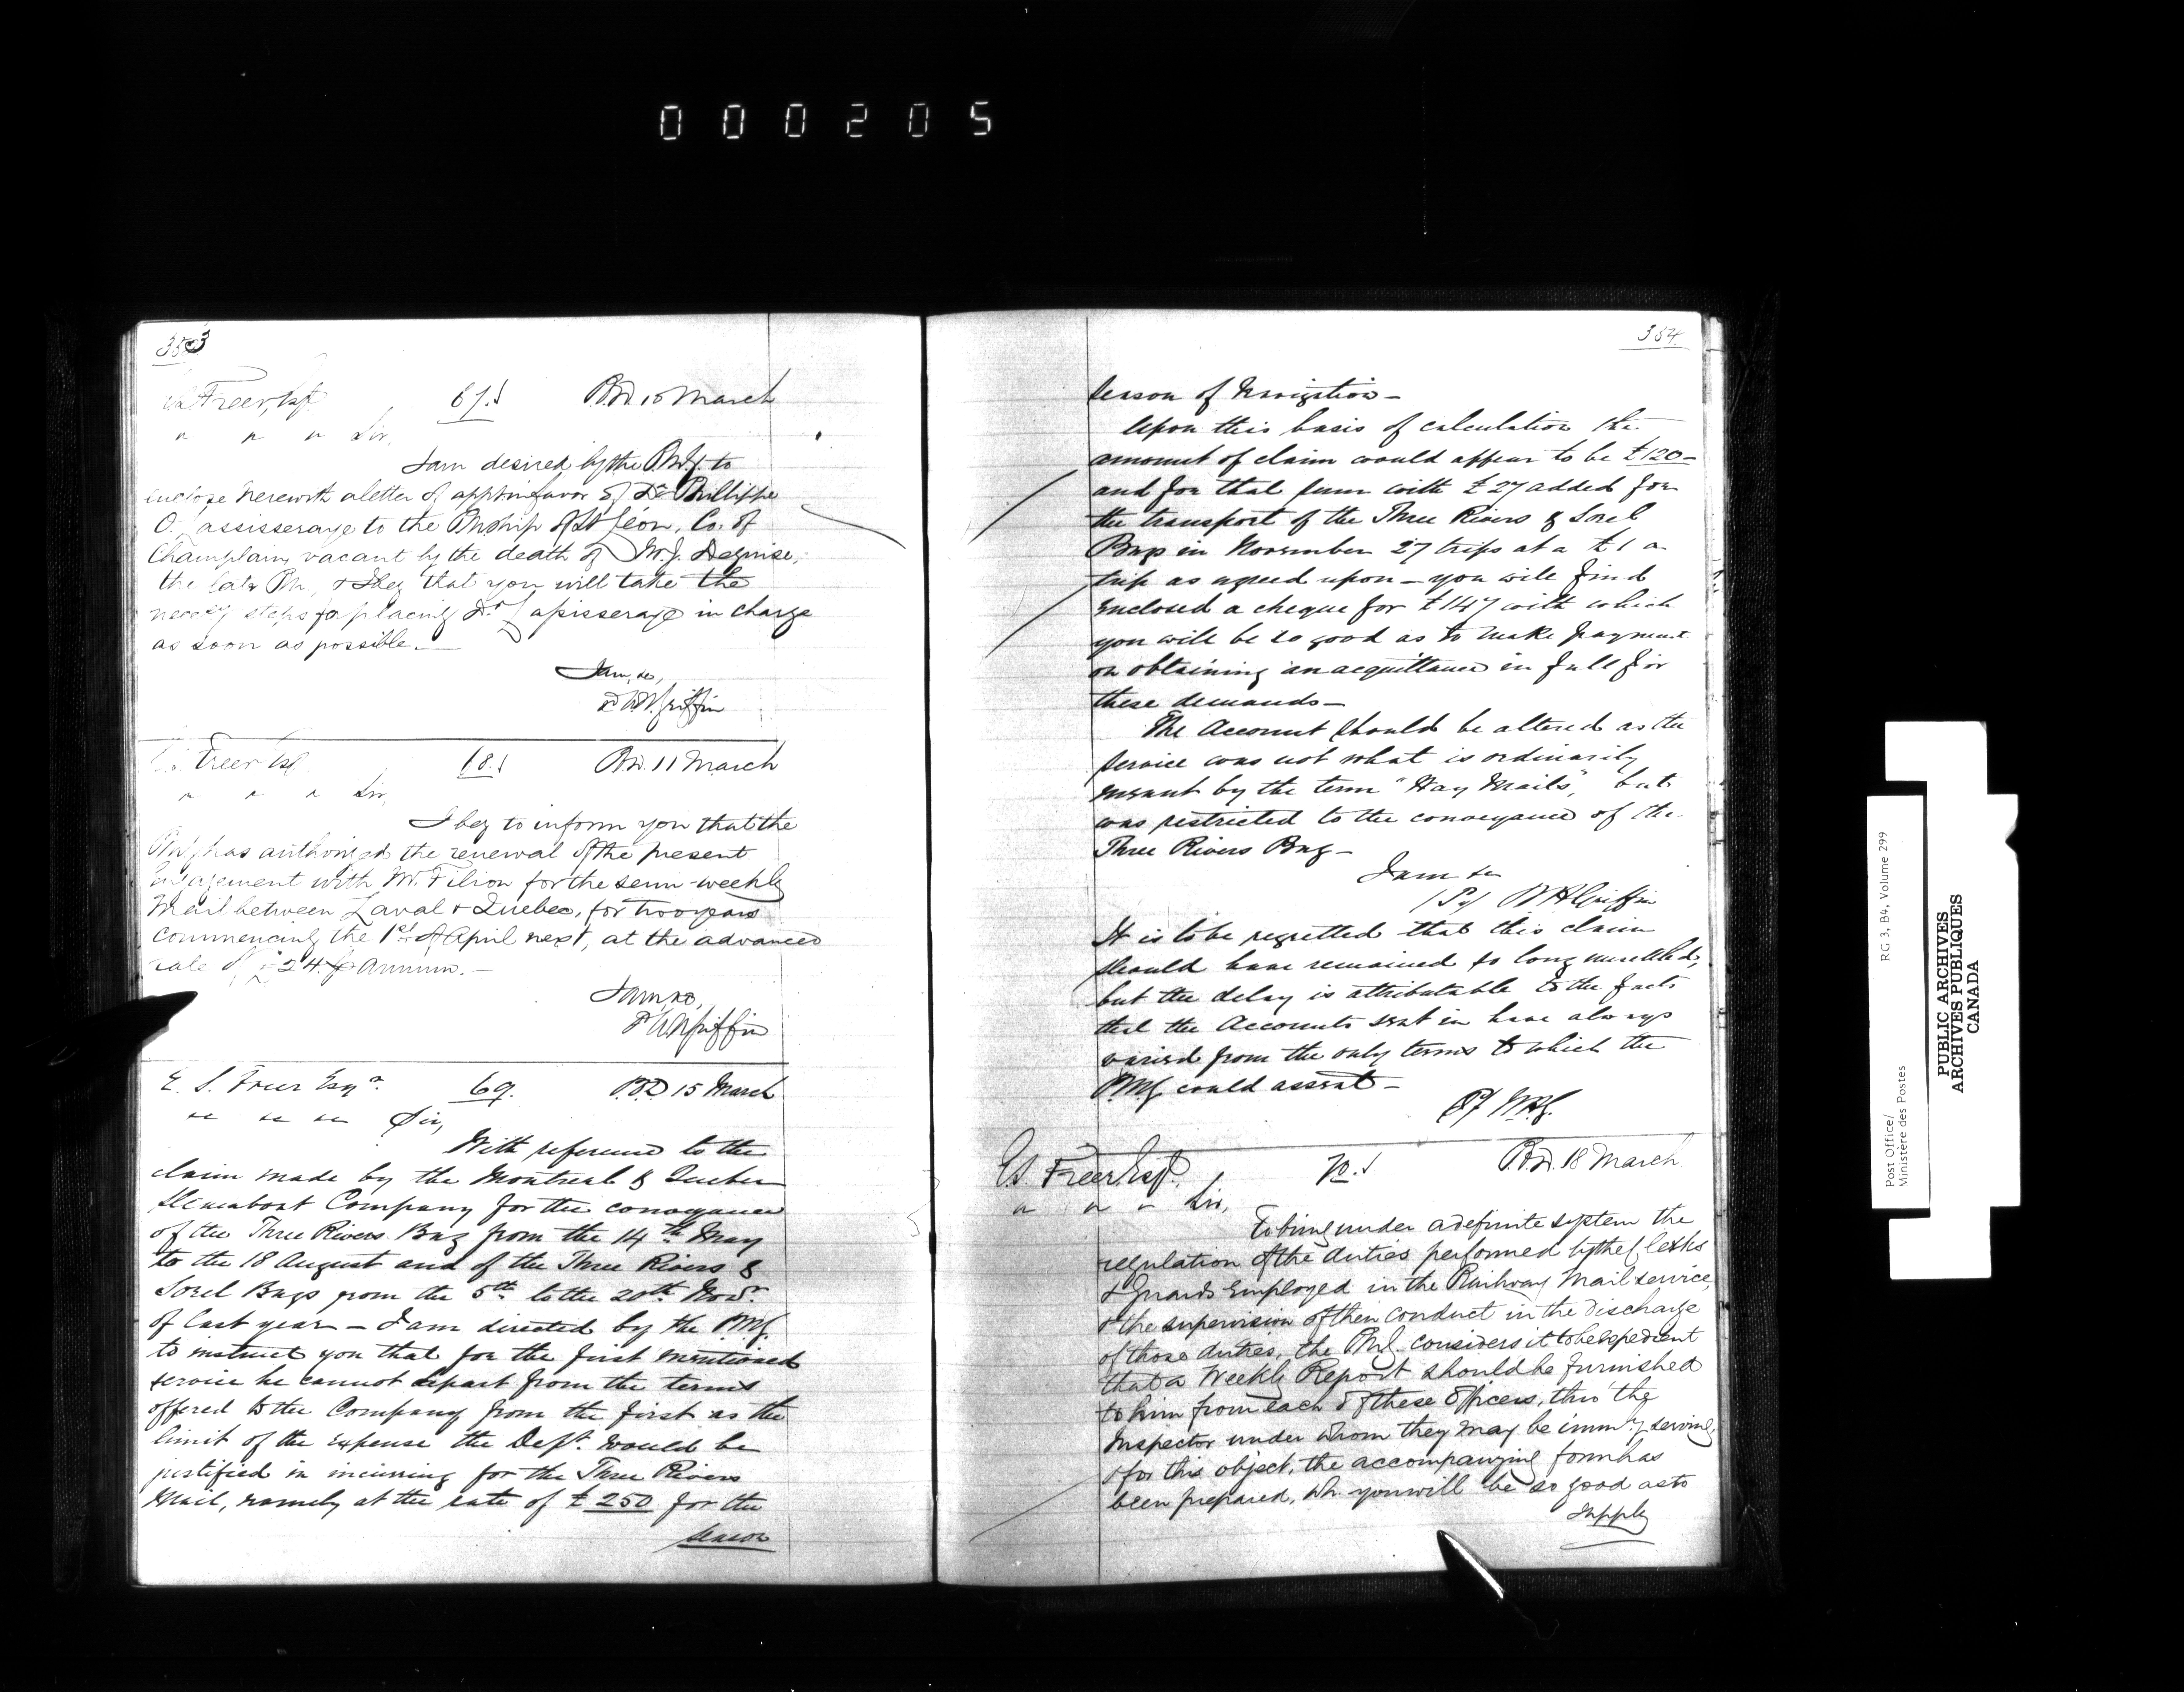 000205
353
Freer, Esq. 67. P.O.D. 10 March
" " " Sir,
I am desired by the P.M.G. to
enclose herewith a letter of appt. in favor of Dr. Phillippe
O. Lassisseraye to the Pmship of St Léon, Co. of
Champlain, vacant by the death of Mr. J. Deguise,
the late Pm., & I beg that you will take the
necesy steps for placing Dr. Lassisseraye in charge
as soon as possible. —
I am, &c,
W.H. Griffin
Freer Esq 68. P.O.D. 11 March
" " " Sir,
I beg to inform you that the
P.M.G. has authorized the renewal of the present
engagement with Mr. Filion for the semi-weekly
Mail between Laval & Quebec, for two years
commencing the 1st of April next, at the advanced
rate of £24. p annum. —
I am &c,
W.H. Griffin
E. S. Freer Esqr. 69. P.O.D 15 March
" " " Sir,
With reference to the
claim made by the Montreal & Quebec
Steamboat Company for the conveyance
of the Three Rivers Bag from the 14th May
to the 18 August and of the Three Rivers &
Sorel Bags from the 5th to the 20th Novr.
of last year — I am directed by the P.M.G.
to instruct you that for the first mentioned
service he cannot depart from the terms
offered to the Company from the first as the
limit of the expense the Dept. would be
justified in incurring for the Three Rivers
Mail, namely at the rate of £250 for the
season
354
Season of Navigation —
Upon this basis of calculation the
amount of claim would appear to be £120 —
and for that sum with £27 added for
the transport of the Three Rivers & Sorel
Bags in November 27 trips at a £1 a
trip as agreed upon — you will find
enclosed a cheque for £147 with which
you will be so good as to make payment
on obtaining an acquittance in full for
these demands —
The Account should be altered as the
service was not what is ordinarily
meant by the term "Way Mails", but
was restricted to the conveyance of the
Three Rivers Bag —
I am &c
W H Griffin
It is to be regretted that this claim
should have remained so long unsettled,
but the delay is attributable to the facts
that the Accounts sent in have always
varied from the only terms to which the
P.M.G. could assent —
W.H.G.
E.S. Freer Esqr. 70. P.O.D. 18 March
" " " Sir,
To bring under a definite system the
regulation of the duties performed by the Clerks
& Guards employed in the Railway Mail service,
& the supervision of their conduct in the discharge
of those duties, the P.M.G. considers it to be expedient
that a Weekly Report should be furnished
to him from each of these Officers, thro' the
Inspector under whom they may be immy. serving,
& for this object, the accompanying form has
been prepared, wh. you will be so good as to
supply
Post Office/
Ministère des Postes
RG 3, B4, Volume 299
PUBLIC ARCHIVES
ARCHIVES PUBLIQUES
CANADA